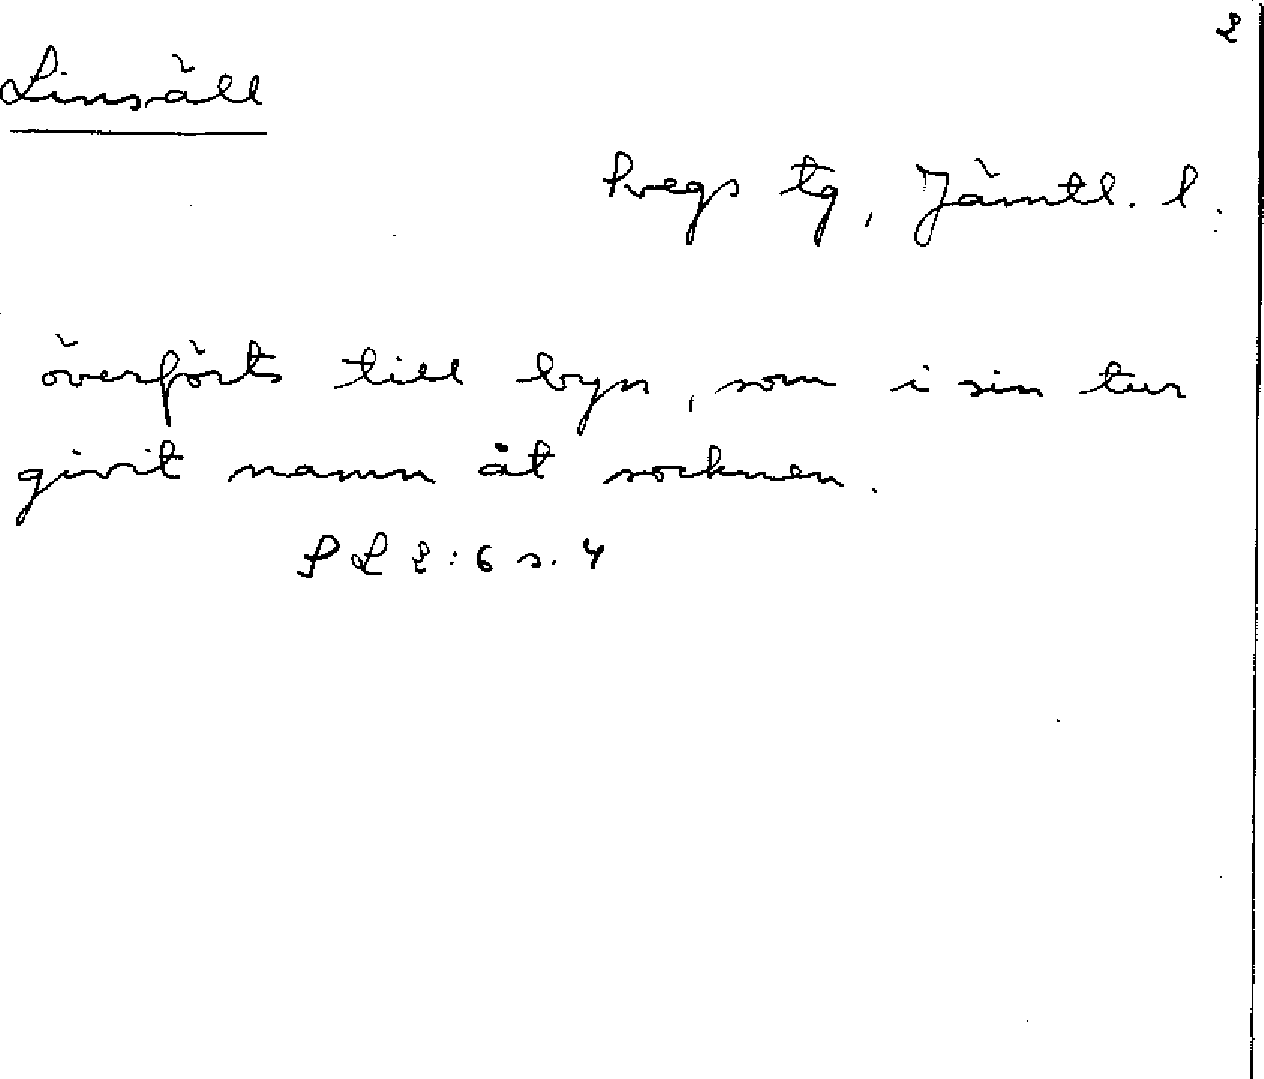 2
Linsäll
Svegs tg, Jämtl. l.
överförts till byn, som i sin tur
givit namn åt socknen.
SL 2:6 s. 4